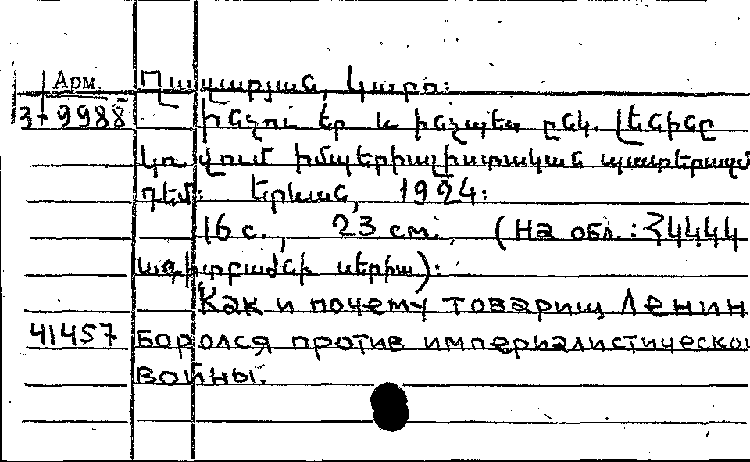 Арм. Ղազարյան, Կարո:
3-9988 Ինչու եր և ինչպես ընկ. Լենինը
կռվում իմպերիալիստական պատերազմի
դեմ: Երևան, 1924:
16 с., 23 см. (На обл.: ՀԿԿԿԿ
ագիտբաժնի սերիա):
Как и почему товарищ Ленин
41457 боролся против империалистической
войны.